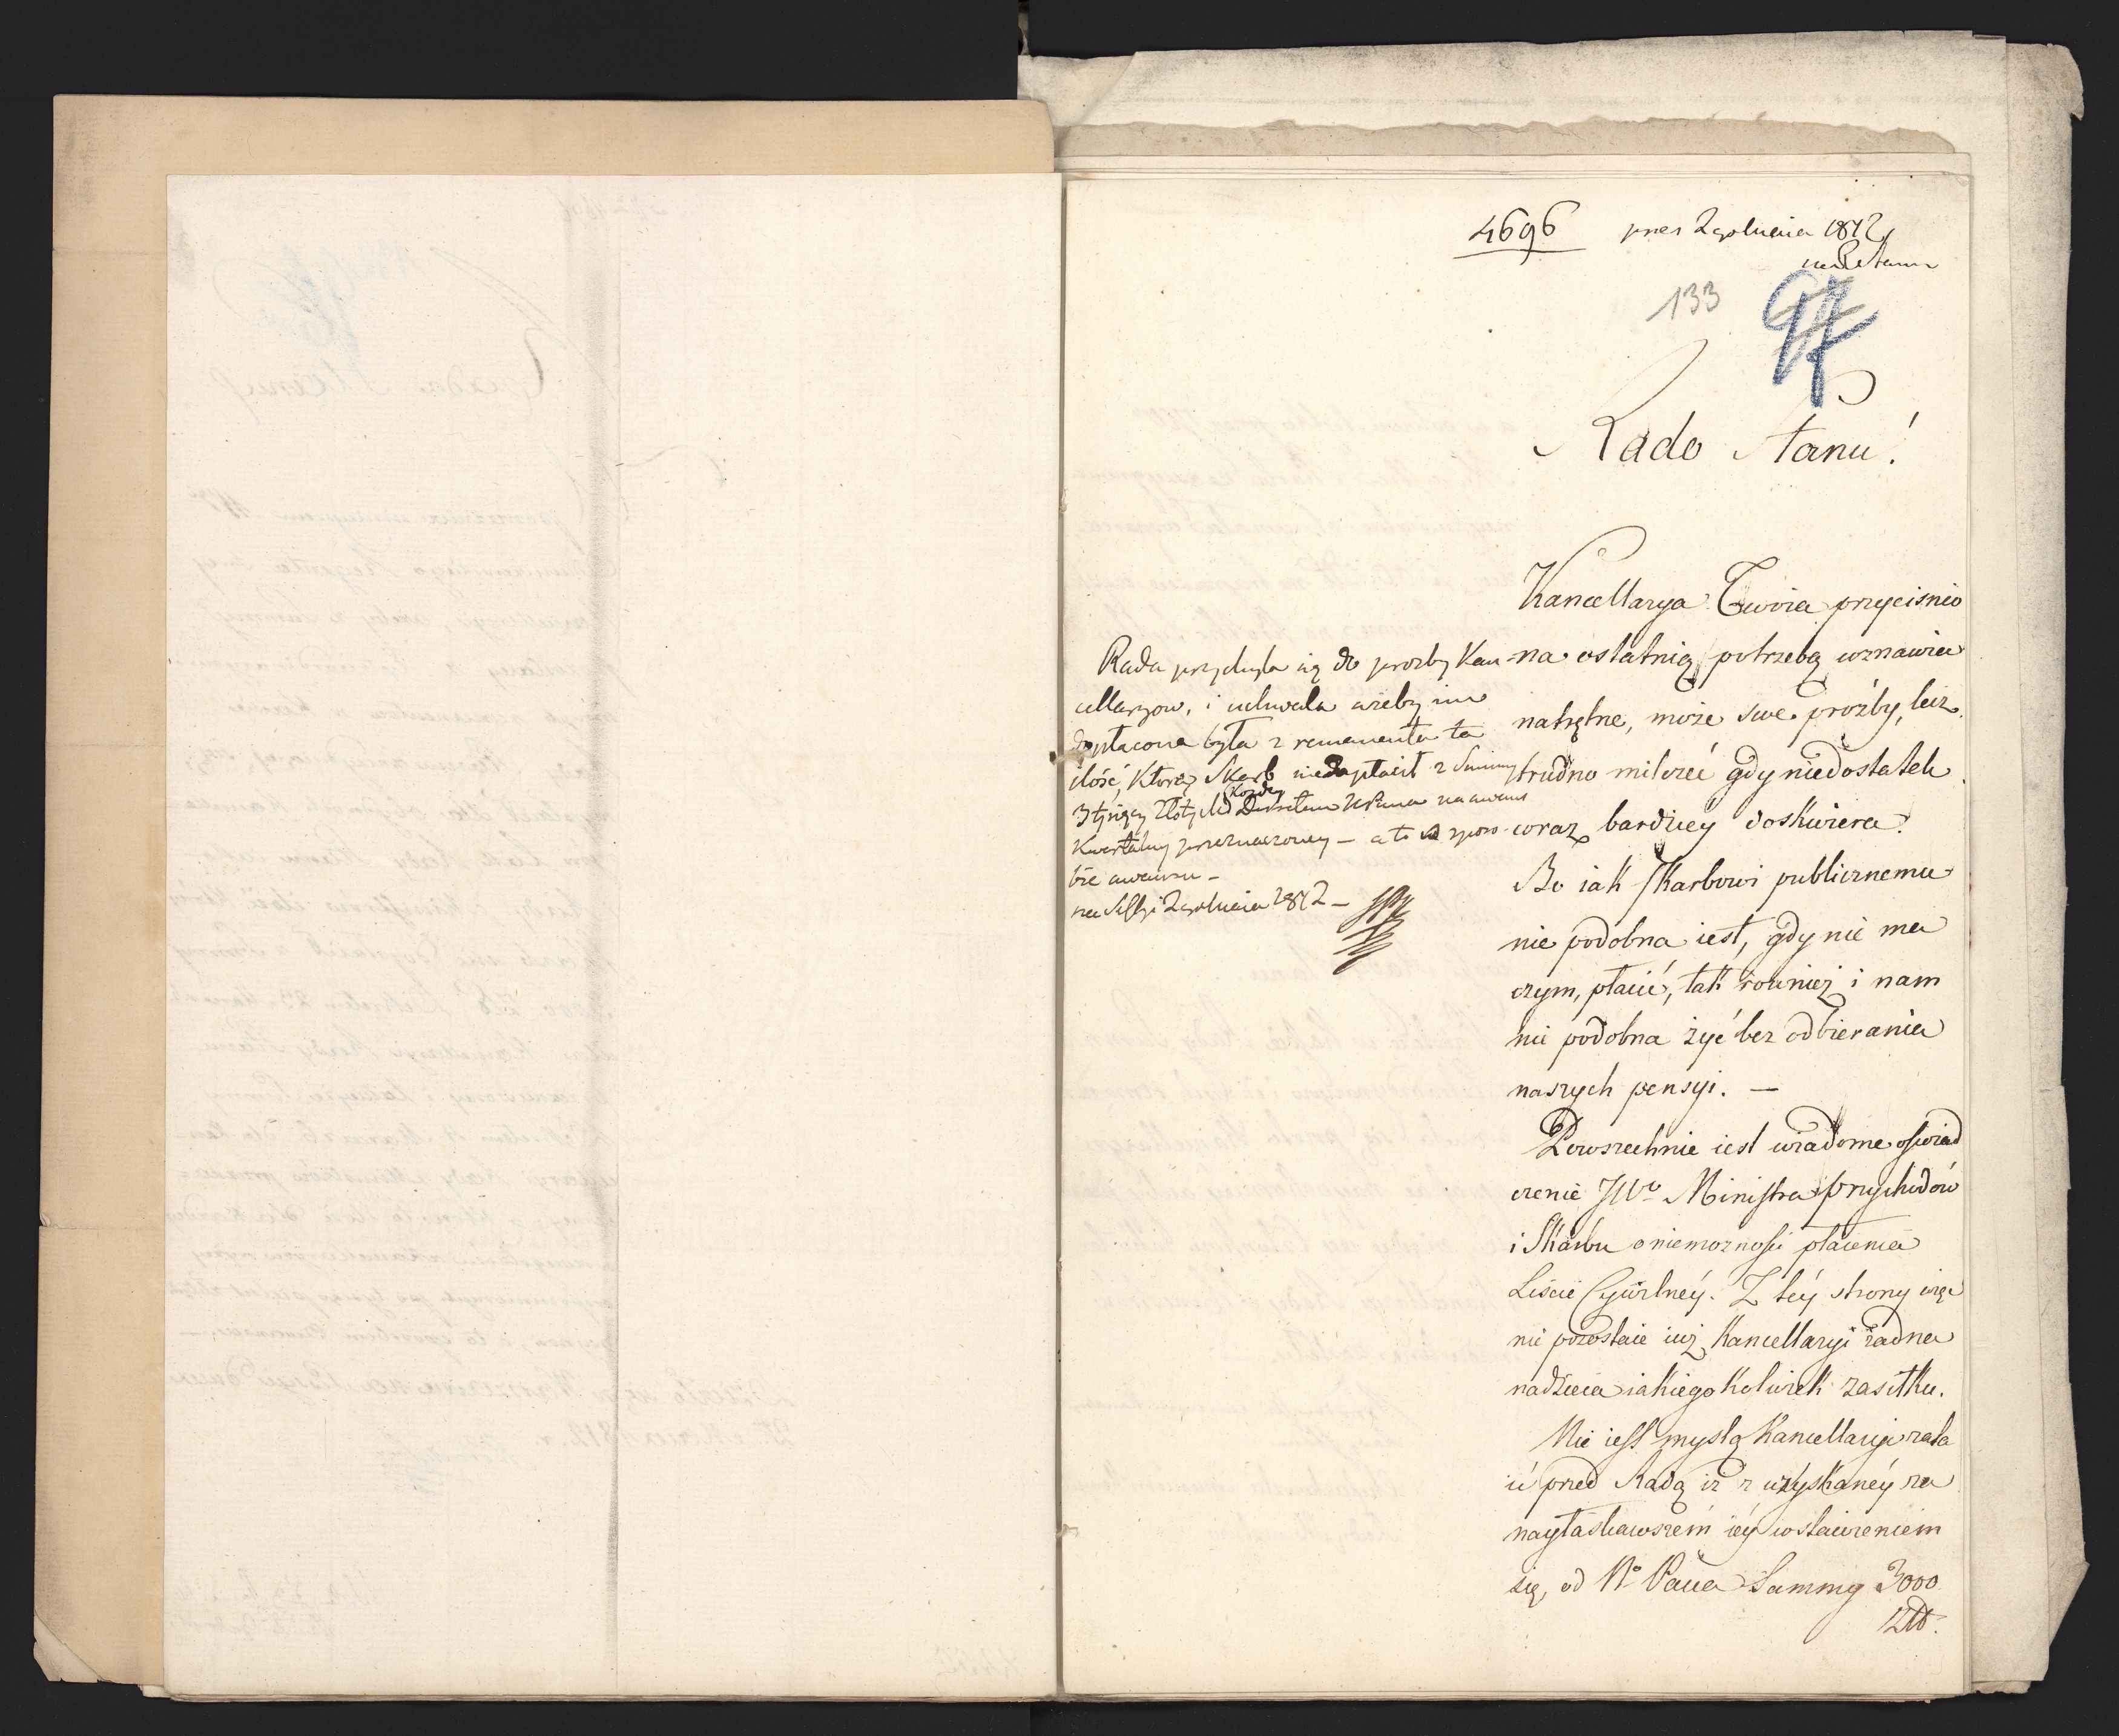 4696 pres 2 Grudnia 1812
133
97
Rado Stanu!
Kancellarya Twoia przyciśnio
na ostatnią potrzebą wznawia
natrętne, może swe prozby, lecz
trudno milczeć gdy niedostatek
coraz bardziey doskwiera.
Bo iak skarbowi publicznemu
nie podobna iest, gdy nie ma
czym, płacić, tak rownież i nam
nie podobna żyć bez odbierania
naszych pensyi. —
Powszechnie iest wiadome oswiad
czenie JWo Ministra Przychodów
i Skarbu o niemożności płacenia
Liście Cywilnéy. Z téy strony więc
nie pozostaie iuż Kancellaryi żadna
nadzieia iakiegokolwiek zasiłku.
Nie iest myslą Kancellaryi zata
ić przed Radą iż z uzyskanéy za
nayłaskawszém iéy wstawieniem
się, od No Pana Summy 3000
Złt.
Rada przychyla się do prozby Kan
cellaryow, i uchwala ażeby im
dopłacona była z remanentu ta
ilość, którą Skarb niedopłacił z Summy
3 tysięcy Złotych Dekretem NPana na awans
kwartalny przeznaczoney — a to w sposo
bie awansu —
na Sessyi 2 Grudnia 1812 —